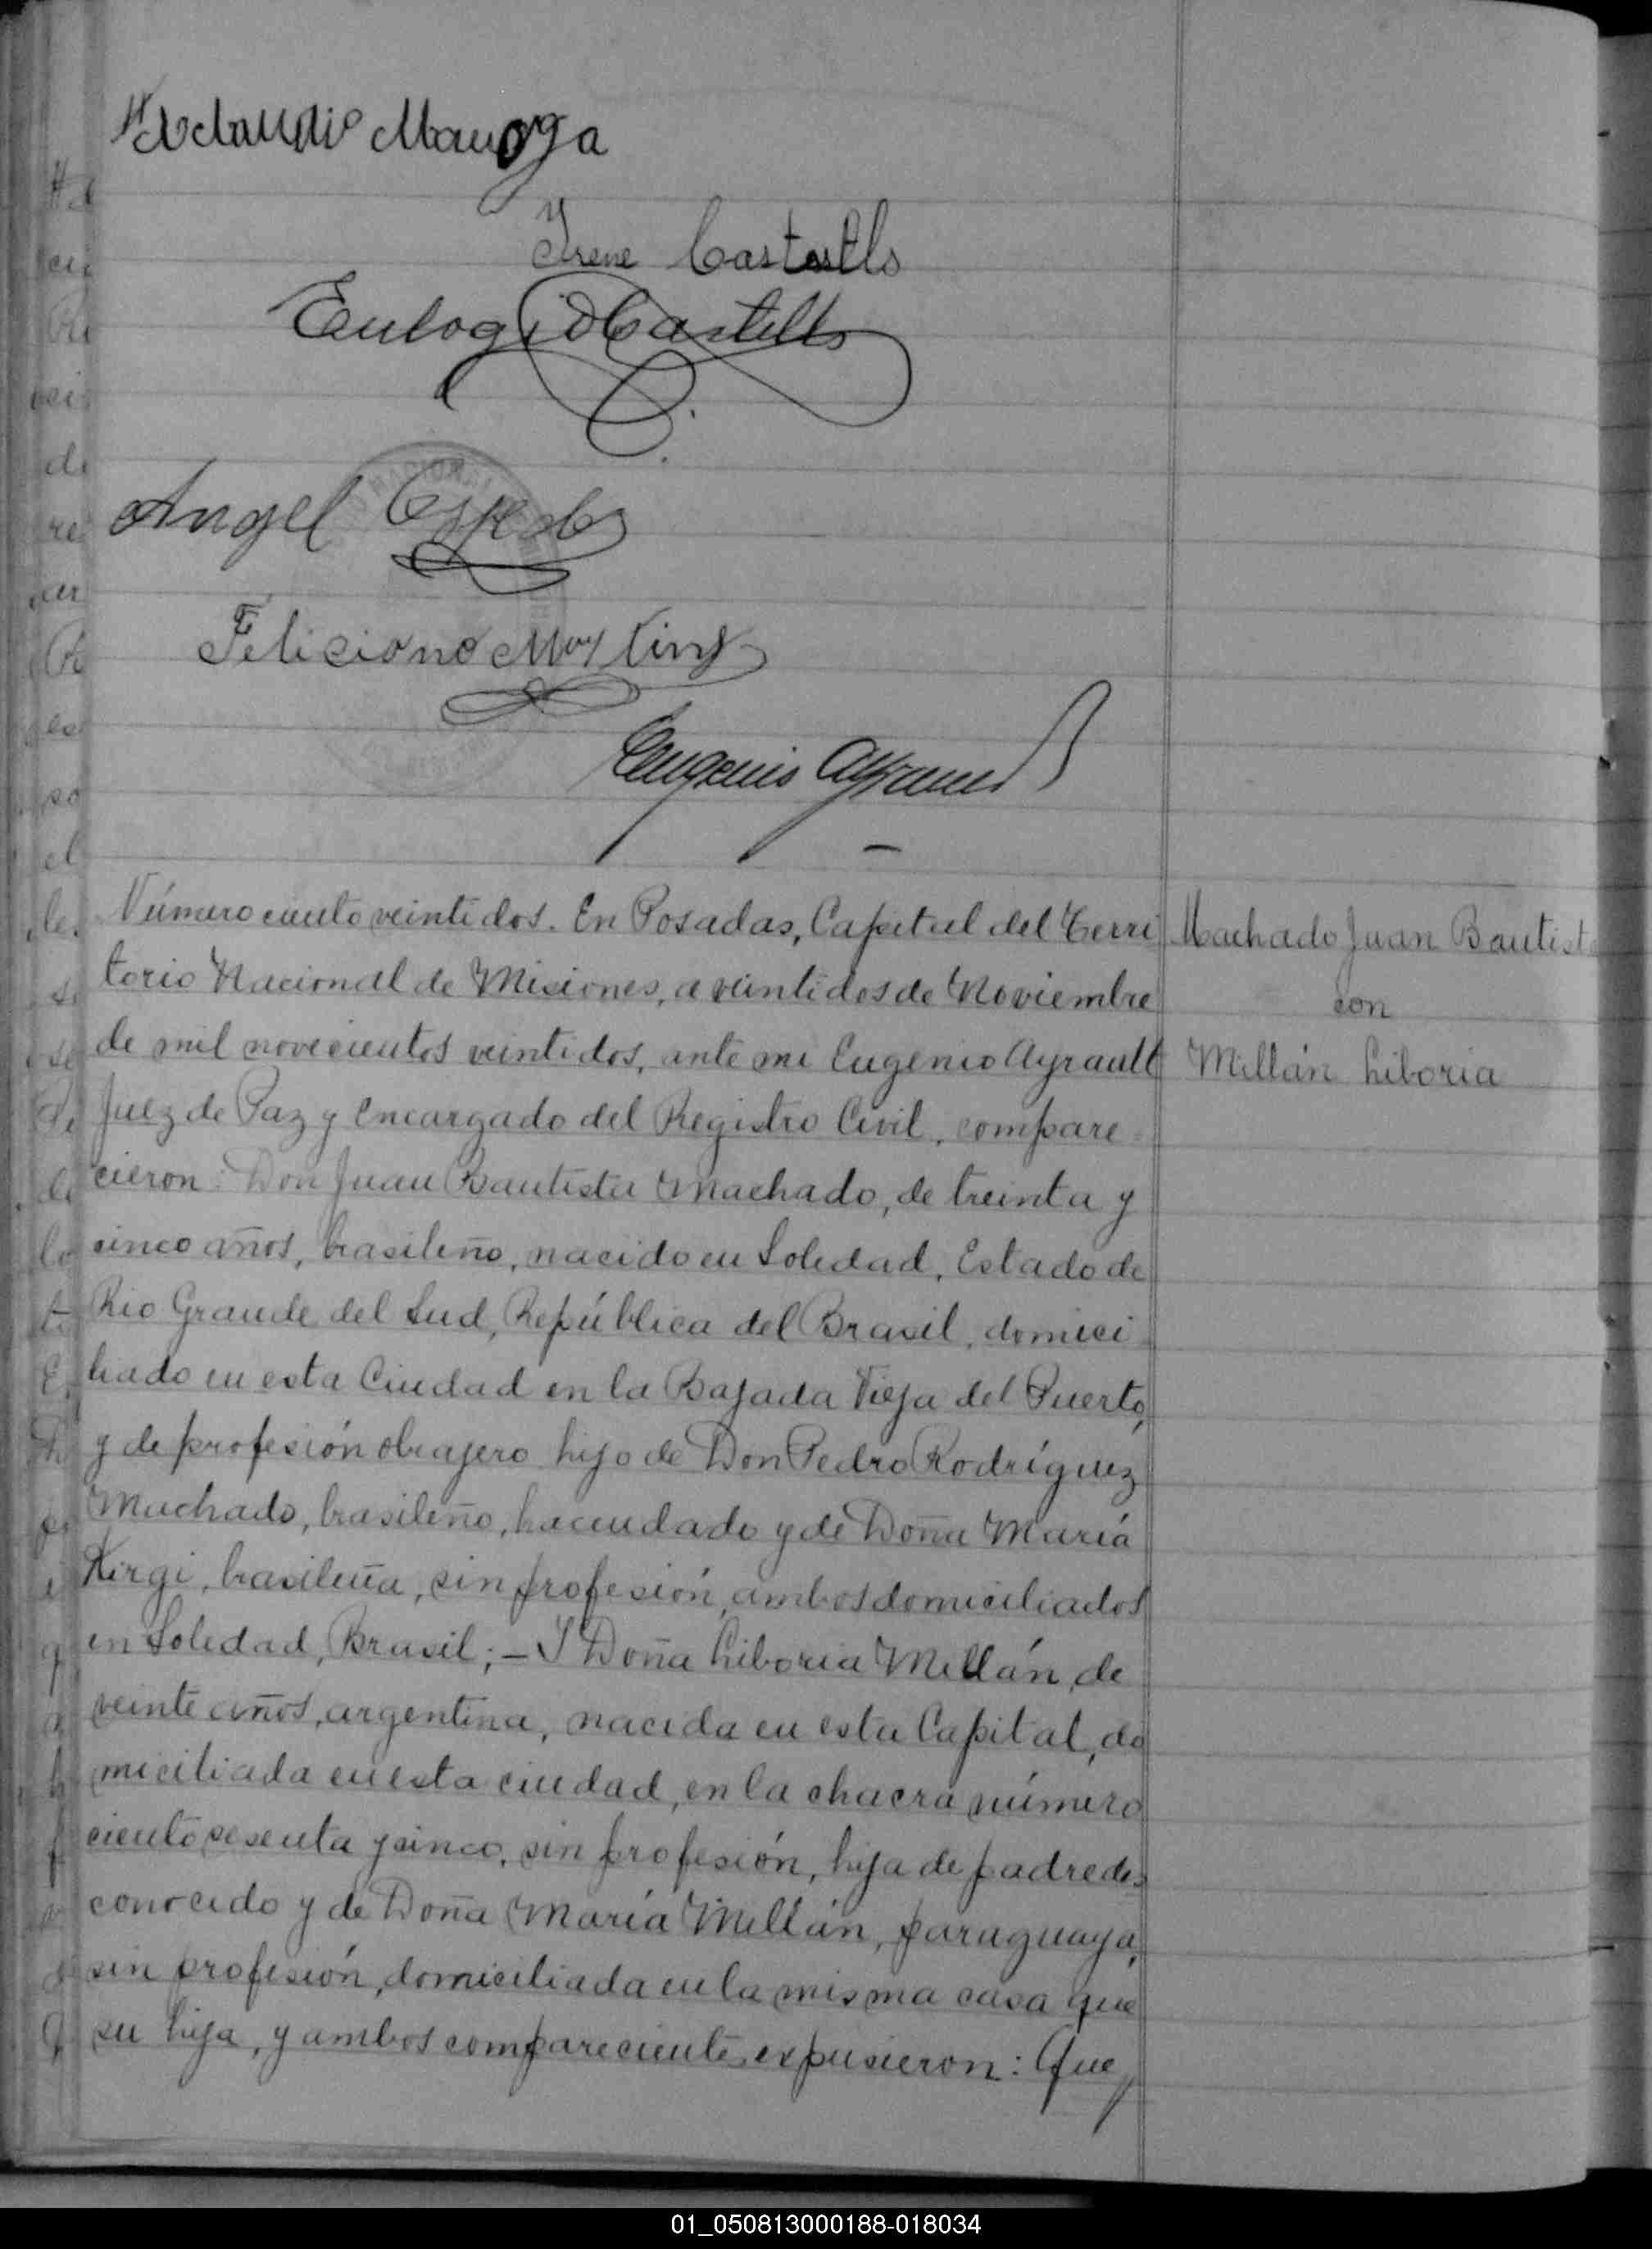 Irene Castells
Eulogio Castells
Angel
Feliciano Martinez
Eugenio Ayrault
Número ciento veintidos. En Posadas, Capital del Terri
torio Nacional de Misiones, a veintidos de Noviembre
de mil novecientos veintidos, ante mi Eugenio Ayrault
Juez de Paz y Encargado del Registro Civil, compare-
cieron: Don Juan Bautista Machado, de treinta y
cinco años, brasileño, nacido en Soledad, Estado de
Rio Grande del Sud, República del Brasil, domici-
liado en esta Ciudad en la Bajada Vieja del Puerto,
y de profesión obrajero hijo de Don Pedro Rodríguez
Machado, brasileño, hacendado y de Doña María
Kirgi, brasileña, sin profesión, ambos domiciliados
en Soledad, Brasil; — Y Doña Liboria Millán, de
veinte años, argentina, nacida en esta Capital, do
miciliada en esta ciudad, en la chacra número
ciento sesenta y cinco, sin profesión, hija de padre des
conocido y de Doña María Millán, paraguaya,
sin profesión, domiciliada en la misma casa que
su hija, y ambos comparecientes expusieron: Que
Machado Juan Bautista
con
Millán Liboria
01_050813000188-018034